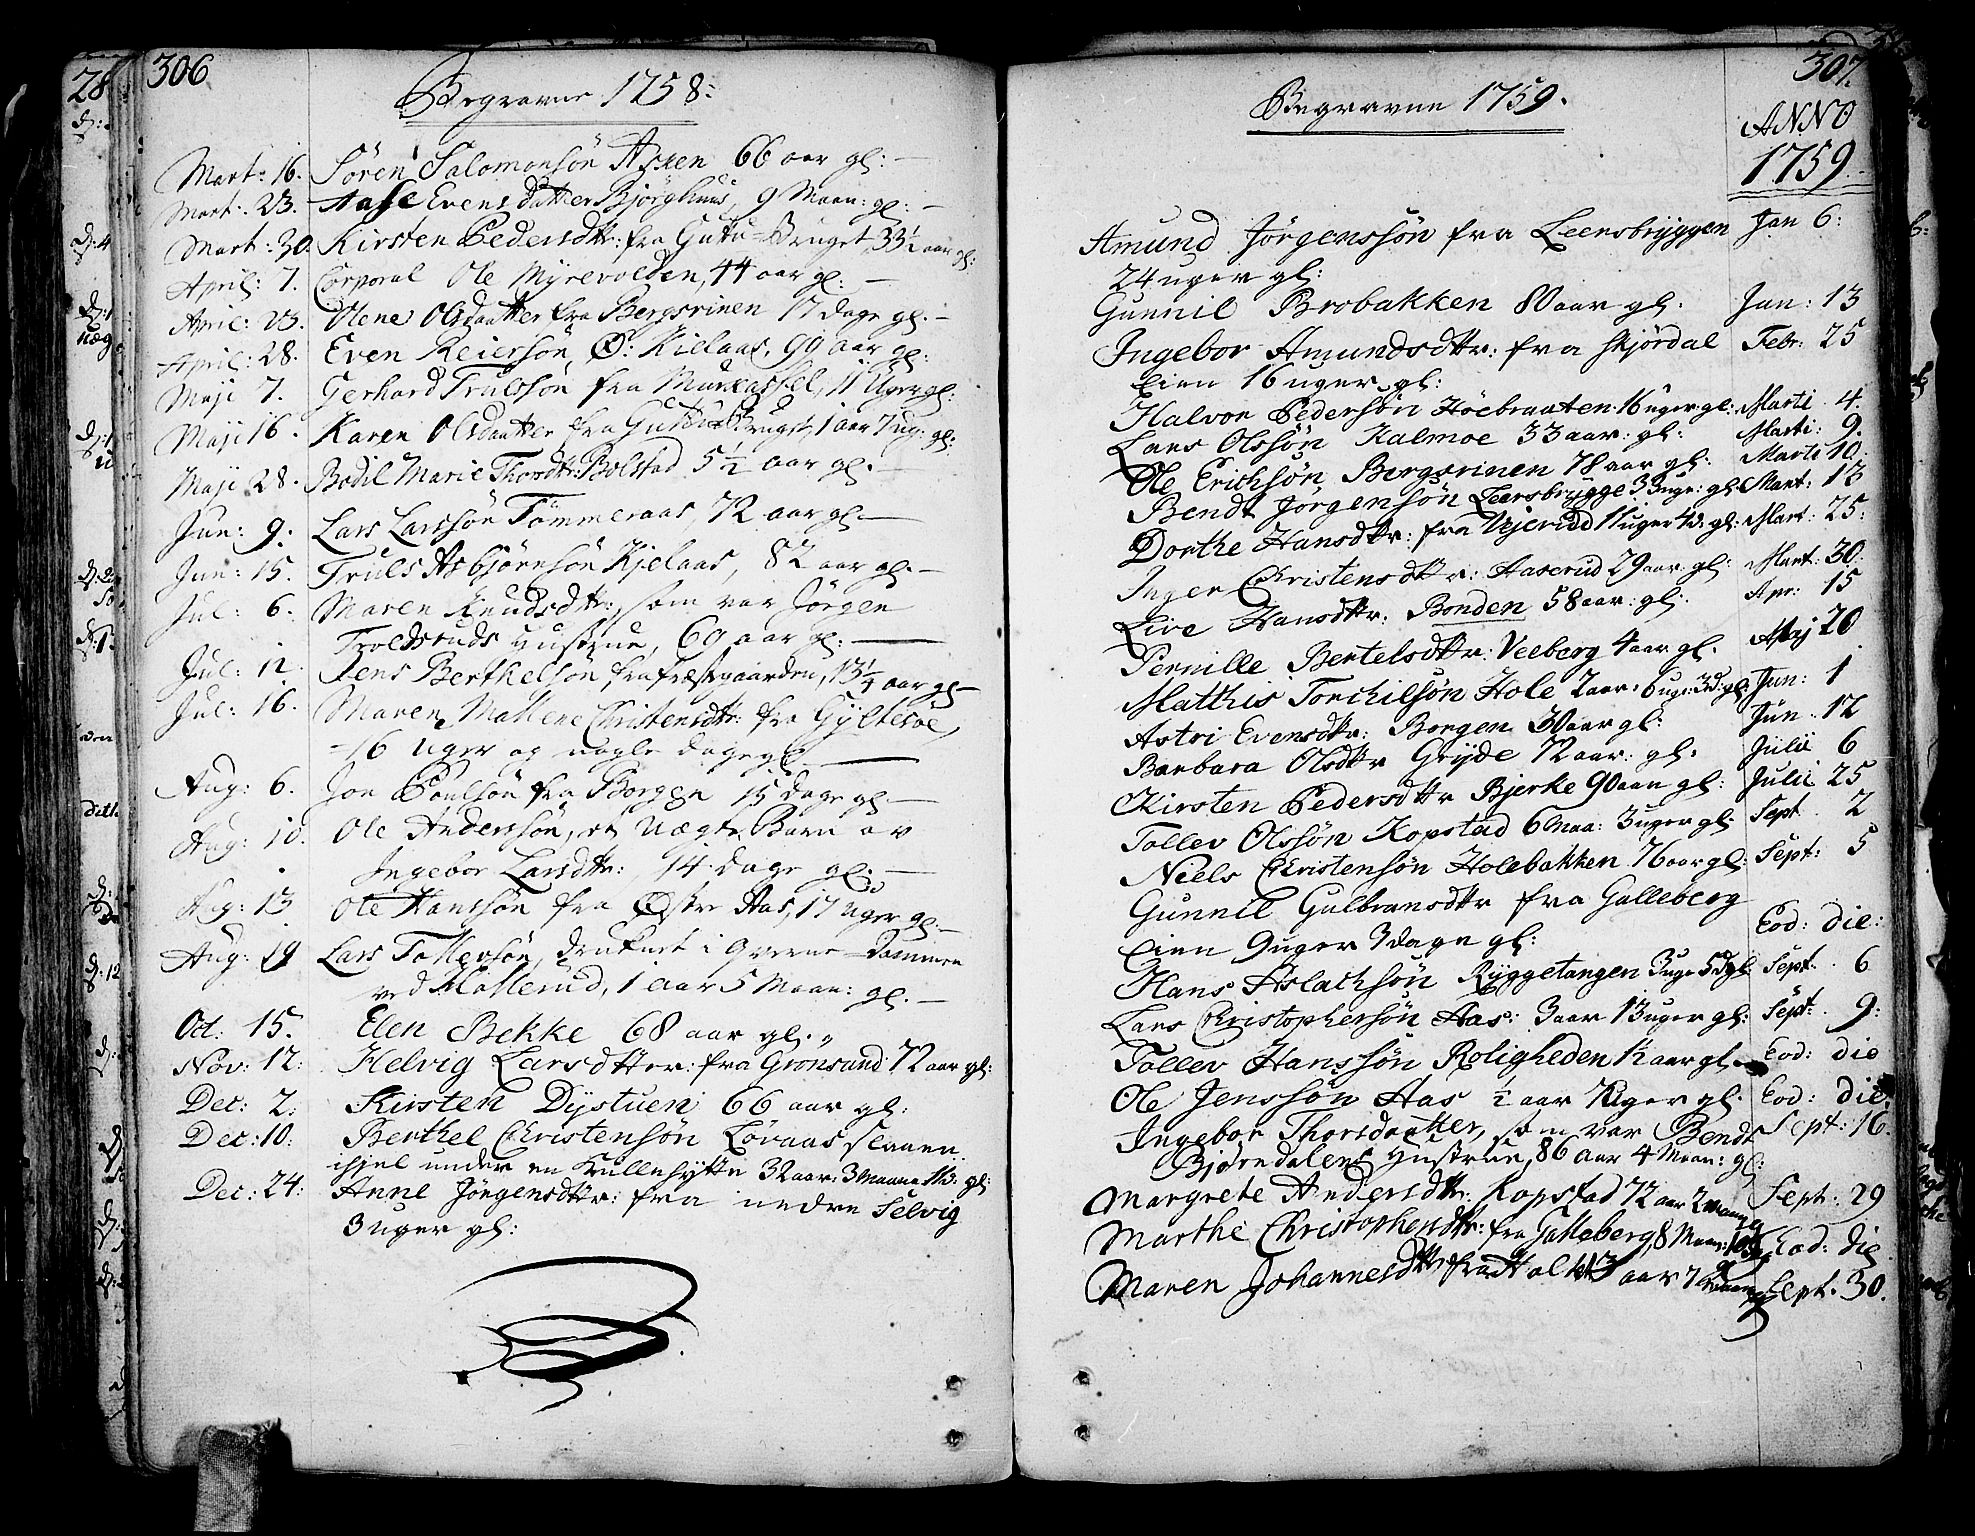 306
Begravne 1758:
Mart: 16. Sören Salomonsön Asken 66 aar gl: —
Mart: 23. Aase Evensdatter Bjørghuus, 9 Maan: gl: —
Mart: 30 Kirsten Pedersdtr: fra Gutu-Bruget 33½ aar gl:
April: 7. Corporal Ole Myrevolden, 44 aar gl: —
April: 23. Olene Olsdaatter fra Bergsrinen 17 dage gl. —
April: 28. Even Reiersön, Ø: Kielaas, 99 aar gl:
Maji 7. Gerhard Trulssön fra Murkassel, 11 Uger gl:
Maji 16. Karen Olsdaatter fra Gutu-Bruget, 1 aar 7 ug: gl:
Maji 28. Bodil Marie Thordtr: Bolstad 5½ aar gl. —
Jun: 9. Lars Larssön Tömmeraas, 72 aar gl. —
Jun: 15. Truls Asbjörnsön Kjelaas, 82 aar gl. —
Jul: 6. Maren Knudsdtr:, som var Jörgen
Troldsruds Hustrue, 69 aar gl: —
Jul: 12. Jens Berthelsön, fra Præstgaarden, 13¼ aar gl —
Jul: 16. Maren Mallene Christensdtr: fra Gyltesoe,
16 Uger og nogle dage gl. —
Aug: 6. Jon Poulsön fra Borgen 15 dage gl. —
Aug: 10. Ole Anderssön, et Uægte Barn av
Ingebor Larsdtr:, 14 dage gl: —
Aug: 13 Ole Hanssön fra Østre Aas, 17 Uger gl. —
Aug: 19 Lars Tollevsön, druknet i Qverne-Dammen
ved Hollerud, 1 aar 5 Maan: gl. —
Oct: 15. Elen Bekke 68 aar gl.
Nov: 12: Helvig Larsdtter: fra Grønsand 72 aar gl:
Dec: 2: Kirsten Dystuen 66 aar gl:
Dec: 10: Berthel Christensön Lövaas slaaen
ihjel under en Kullehytte 32 aar: 3 maan gl:
Dec: 24: Anne Jörgensdtr: fra nedre Selvig
3 uger gl:
307.
Begravne 1759.
ANNO
1759.
Amund Jörgenssön fra Leersbryggen Jan 6:
24 uger gl:
Gunnil Brobakken 80 aar gl. Jan: 13
Ingebor Amundsdtr: fra Skjördal Febr: 25
Eien 16 uger gl:
Halvor Pedersön Höebraaten 16 uger gl: Marti. 4.
Lars Olssön Kalmoe 33 aar: gl: Marti: 9.
Ole Erichsön Bergsrinen 78 aar gl: Marti 10.
Bendt Jörgensön Leersbrygge 33 uge: gl: Mart: 13
Dorthe Hansdtr: fra Kjerudd 11 uger 4 d: gl: Mart: 25:
Inger Christensdtr: Aaserud 29 aar: gl: Mart: 30.
Live Hansdtr: Bonden 58 aar: gl: Apr: 15
Pernille Bertelsdtr: Veeberg 4 aar gl. Maj 20
Matthis Torchilsön Hole 2 aar: 6 uge: 3 d: gl: Jun: 1
Astri Evensdtr: Borgen 30 aar gl: Jun. 12
Barbara Olsdtr Gryde 72 aar: gl. Julii 6
Kirsten Pedersdtr Bjerke 90 aar gl: Julii 25
Tollev Olssön Kopstad 6 maa: 3 uger gl: Sept. 2
Niels Christensön Holebakken 76 aar gl: Sept: 5
Gunnil Gulbransdtr fra Galleberg
Eien 9 uger 3 dage gl: Eod: die:
Hans Aslachsön Ryggetangen 3 uge 5 d gl: Sept. 6
Lars Christophersön Aas: 3 aar 13 uger gl: Sept. 9:
Tollev Hanssön Roligheden 12 aar gl. Eod: die
Ole Jenssön Aas ½ aar 7 uger gl. Eod: die:
Ingebor Thorsdaatter, som var Bendt Sept: 16.
Bjørndalens Hustrue, 86 aar 4 Maan: gl:
Margrete Andersdtr: Kopstad 72 aar 2 maan gl Sept: 29
Marthe Christophersdtr: fra Galleberg, 8 Maan: Eod: die
Maren Johannesdtr fra Hol 43 aar 7 maan gl Sept. 30.